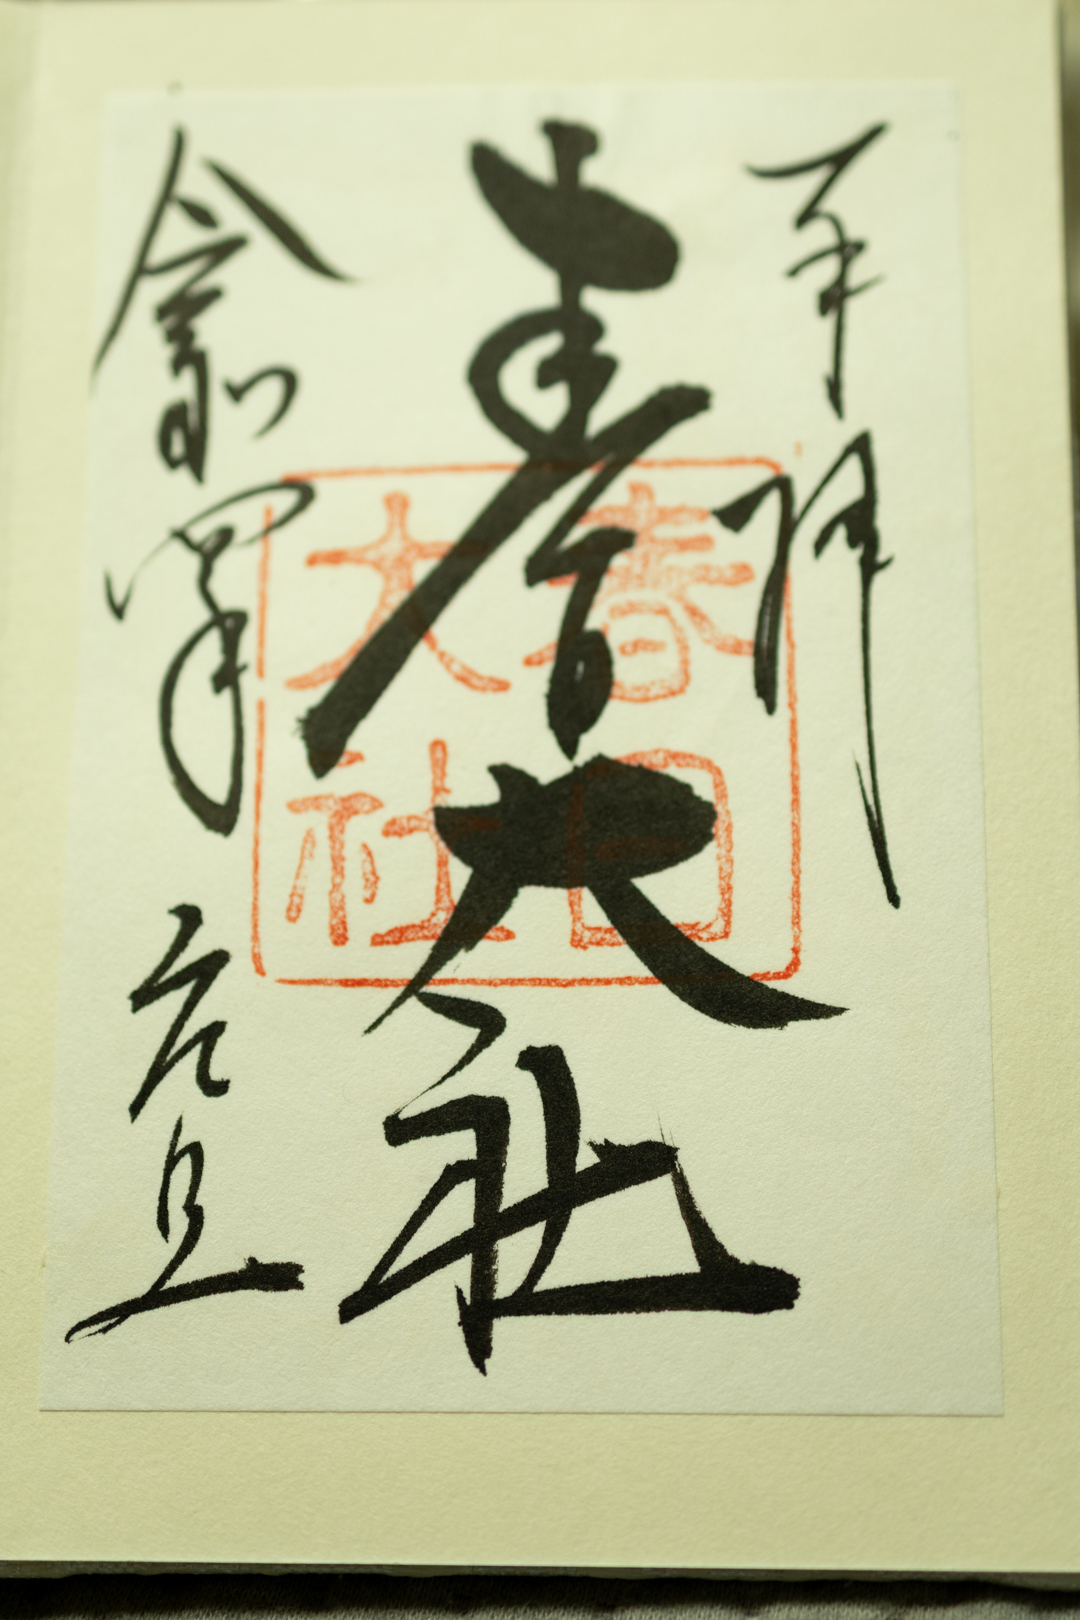 奉拝
春日大社
令和四年 元旦
春日
大社